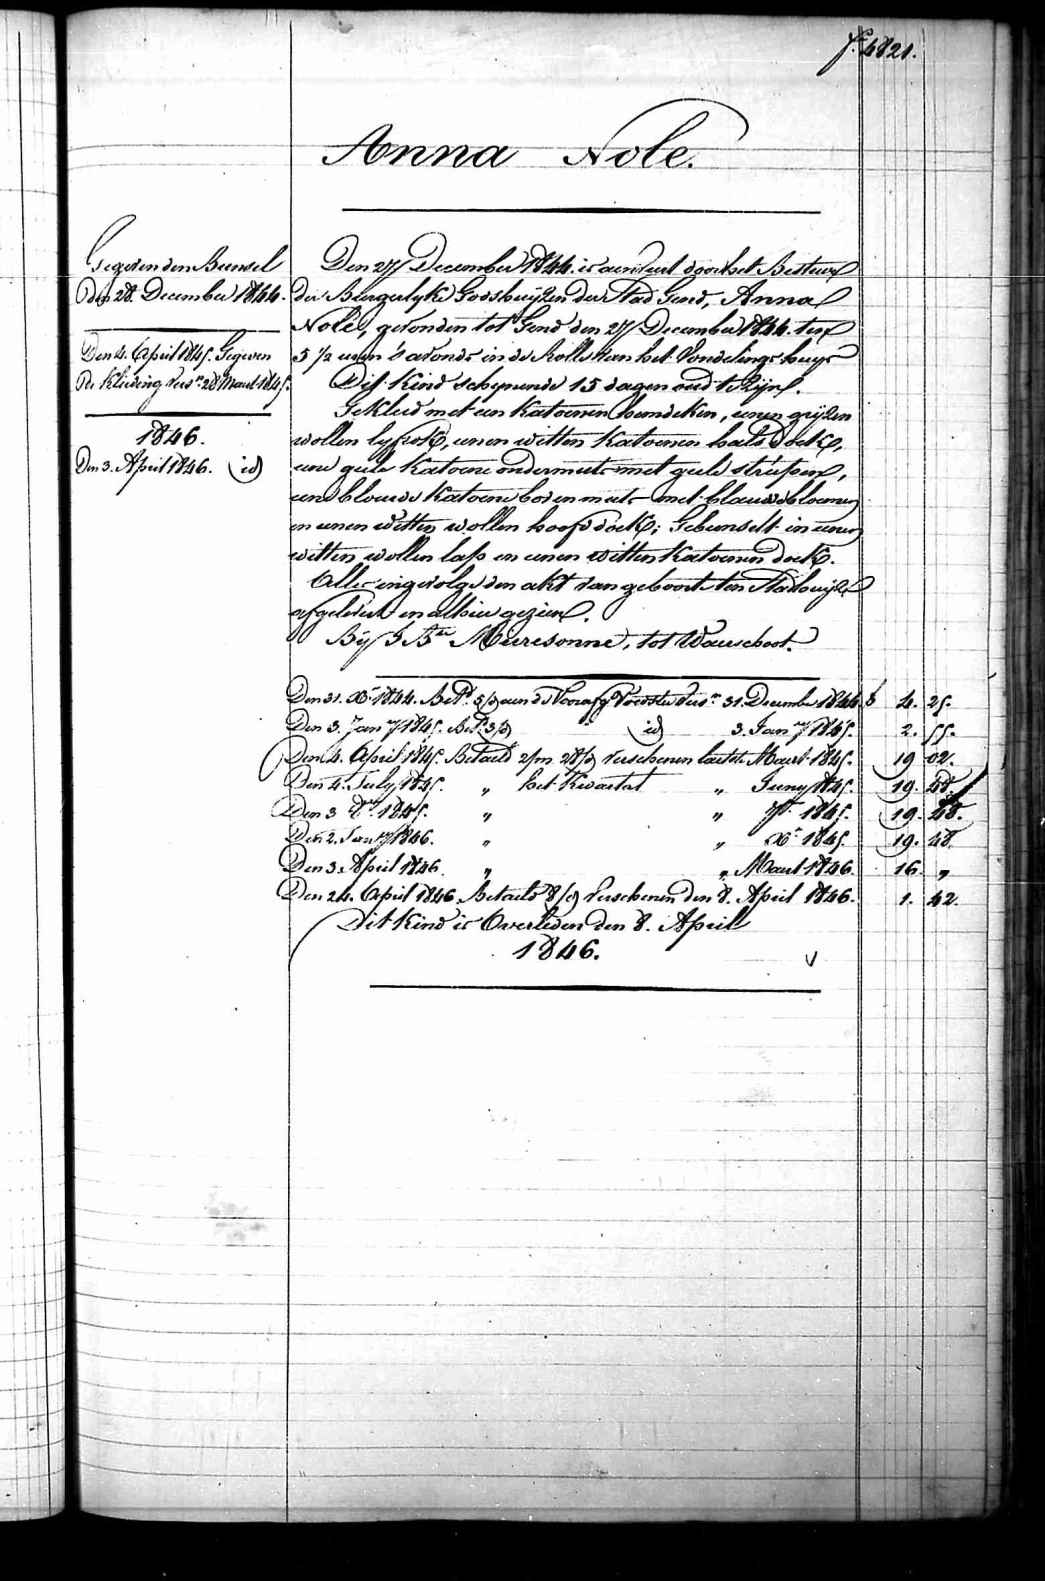 f. 4821.
Anna Nole.
Gegeven den Bunsel
den 28. December 1844.
Den 4. April 1845. Gegeven
de Kleeding versn. 28 Maart 1845.
1846.
Den 3. April 1846. id
Den 27 December 1844. is aenveert door het Bestuer
der Burgerlyke Godshuyzen der Stad Gend, Anna
Nole, gevonden tot Gend den 27 December 1844. ten
5 1/2 uren 's avonds in de Rolle van het Vondelings huys
Dit Kind schynende 15 dagen oud te zijn.
Gekleed met een Katoenen hemdeken, eenen gryzen
wollen lyfrok, eenen witten Katoenen hals doek,
eene geele Katoene ondermuts met geele streepen,
eene bloeude Katoene bovenmuts met blauwe bloemen
en eenen witten wollen hoofddoek; Gebunselt in eenen
witten wollen lap en eenen witten Katoenen doek.
Alles ingevolge den akt van geboorte ten Stadhuize
afgeleverd en alhier gezien.
By J Bte Meiresonne, tot Waerschoot.
Den 31. Xr 1844. Betd. 5/d aen de Voorafg Voedster versn 31. December 1844. f 4. 25.
Den 3. Jany 1845. Bet. 3/d id 3. Jany 1845. 2. 55.
Den 4. April 1845. Betaeld 2/m 28/d verschenen laetste Maert 1845. 19. 02.
Den 4. July 1845. " het Kwartael " Juny 1845. 19. 48.
Den 3 8ber 1845. " " 7br 1845. 19. 48.
Den 2. Jany 1846. " " Xr 1845. 19. 48
Den 3. April 1846. " " Maert 1846. 16. "
Den 24. April 1846. Betaeld 8/d Verschenen den 8. April 1846. 1. 42.
Dit Kind is Overleden den 8. April
1846.